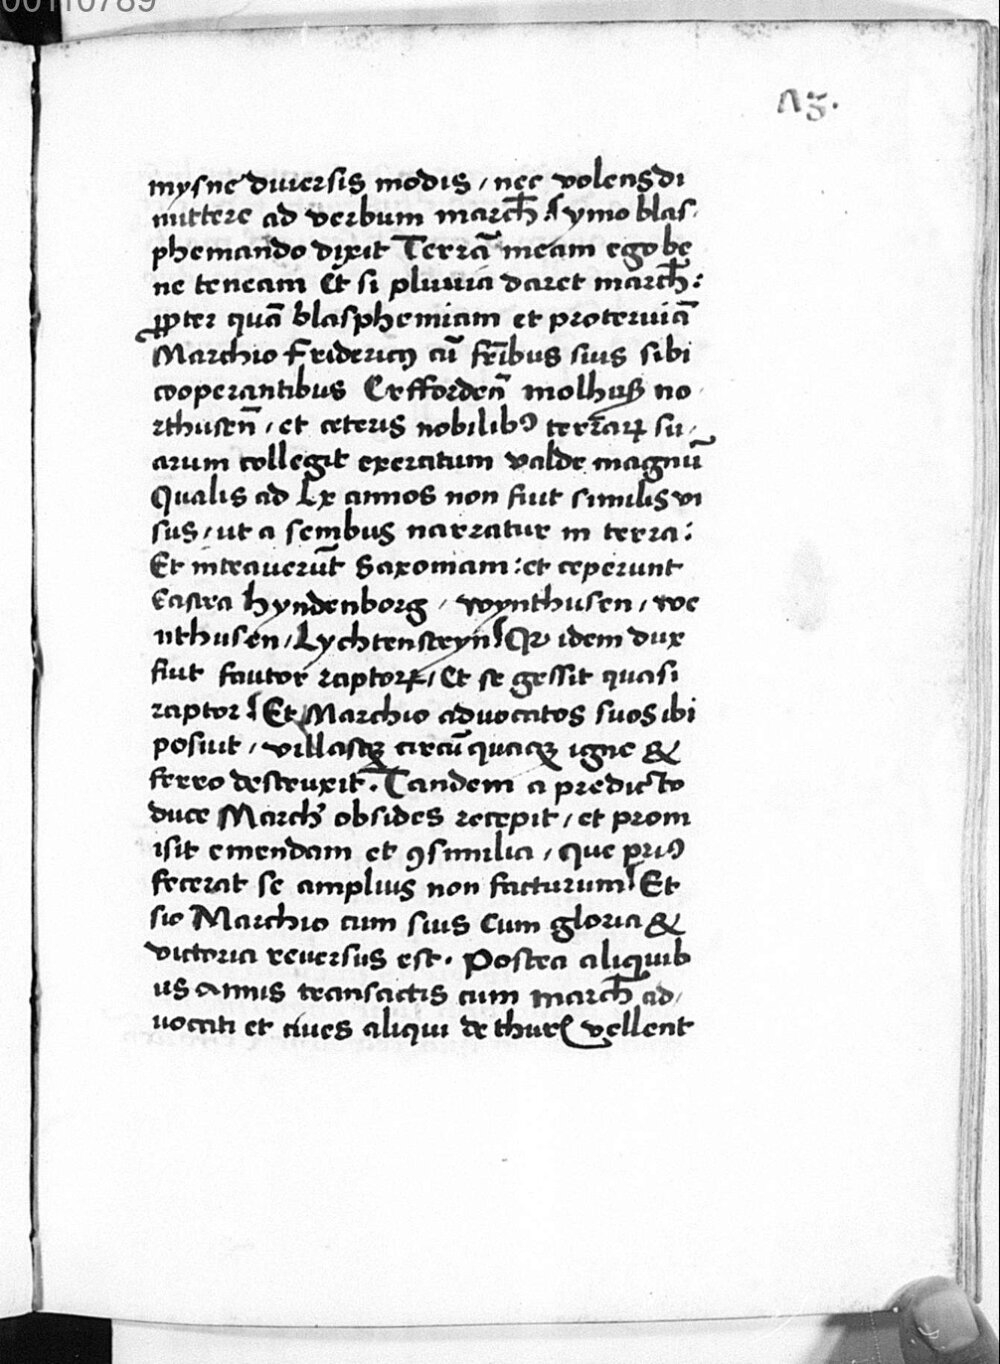 00110789
Λ5.
mysne diuersis modis / nec volens di
mittere ad verbum march̄ / ymo blas-
phemando dixit Terrā meam ego be
ne teneam Et si pluuia daret march̄:
ꝓpter quā blasphemiam et proteruiā
Marchio Fridericꝰ cū fr̄ibus suis sibi
cooperantibus Erffordeñ molhuß no
rthuseñ / et ceteris nobilibꝰ terrarꝝ su-
arum collegit exercitum valde magnū
Qualis ad Lx annos non fuit similis vi
sus / ut a senibus narratur in terra:
Et intrauerūt Saxoniam : et ceperunt
Castra hyndenborg / wynthusen / we
nthusen / Lychtensteyn / Qꝛ idem dux
fuit fautor raptorꝝ / Et se gessit quasi
raptor / Et Marchio aduocatos suos ibi
posuit / villasqꝫ circūquaqꝫ igne &
ferro destruxit. Tandem a predicto
duce March̄ obsides recepit / et prom
isit emendam et ꝯsimilia / que priꝰ
fecerat se amplius non facturum / Et
sic Marchio cum suis cum gloria &
victoria reuersus est. Postea aliquib
us annis transactis cum march̄ ad /
uocati et ciues aliqui de thur̄ vellent